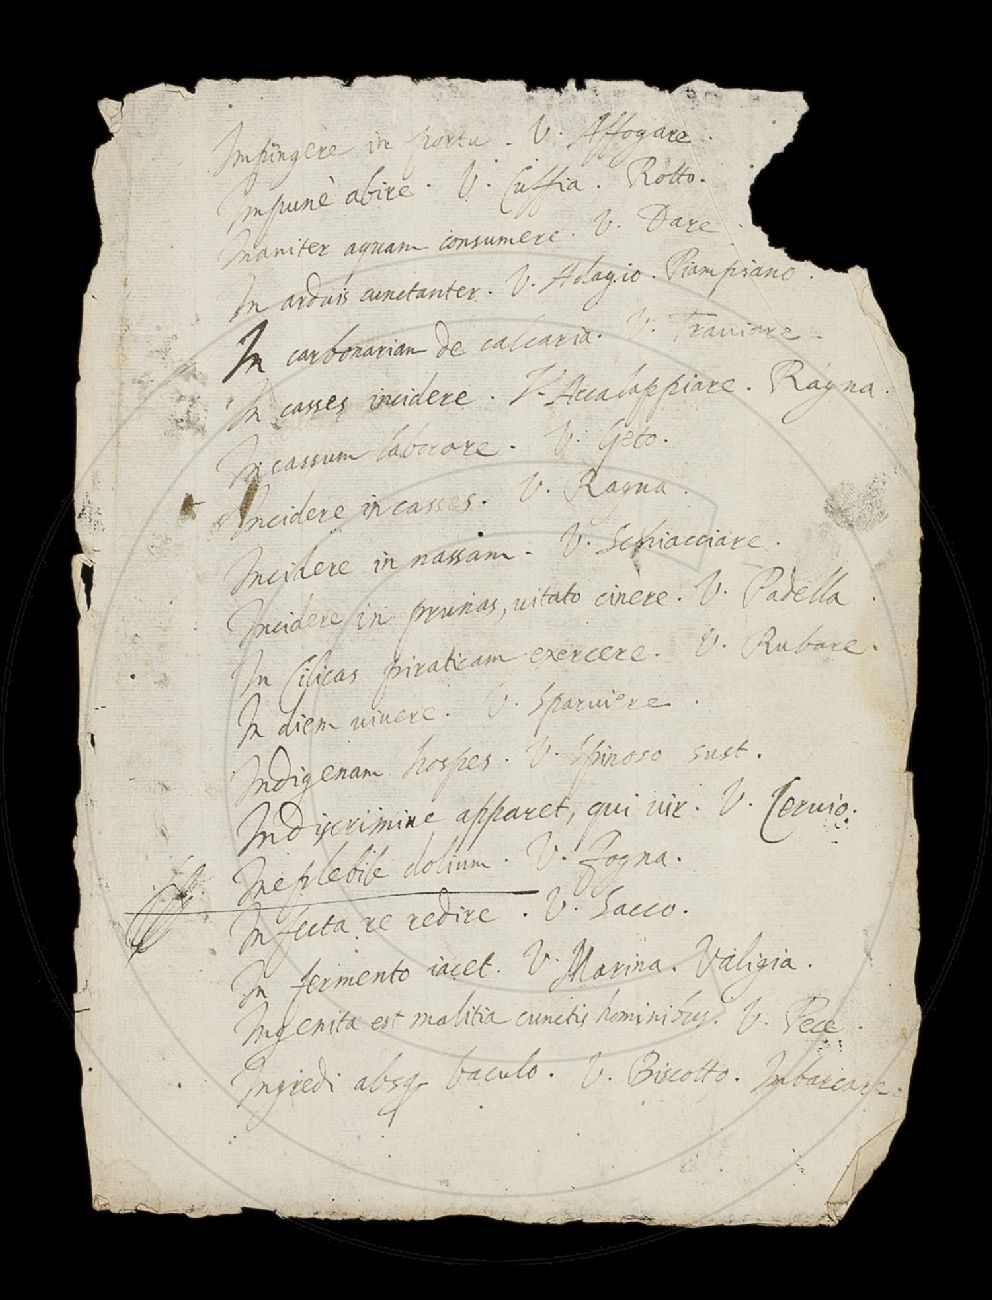 Impingere in portu. V. Affogare.
Impunè abire. V. Cuffia. Rotto.
Inaniter aquam consumere. V. Dare.
In arduis cunctanter. V. Adagio. Piampiano.
In carbonariam de calcaria. V. Traviare.
In casses incidere. V. Accalappiare. Ragna.
In cassum laborare. V. Geto.
Incidere in casses. V. Ragna.
Incidere in nassam. V. Schiacciare.
Incidere in prunas, uitato cinere. V. Padella.
In Cilicas piraticam exercere. V. Rubare.
In diem uiuere. V. Sparuiere.
Indigenam hospes. V. Spinoso sust.
Indiscrimine apparet, qui uir. V. Ceruio.
Ineplebile dolium. V. Fogna.
Infecta re redire. V. Sacco.
In fermento iacet. V. Marina. Valigia.
Ingenita est malitia cunctis hominibus. V. Pece.
Ingredi absq baculo. V. Biscotto. Imbarcare.